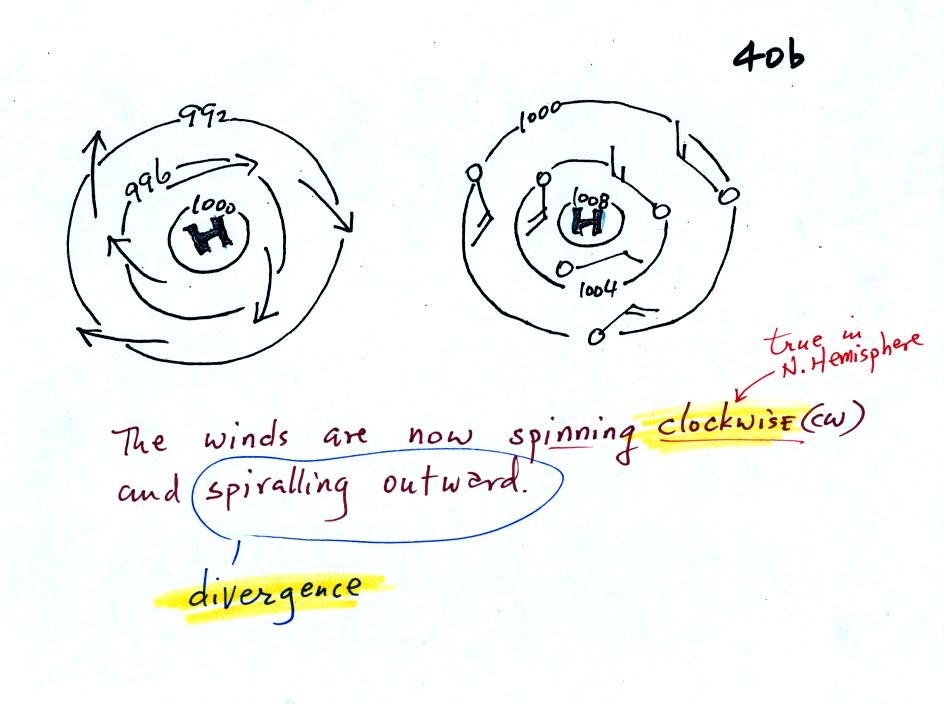 40b
992
996
1000
H
1000
1008
H
1004
true in
N. Hemisphere
The winds are now spinning clockwise (CW)
and spiralling outward.
divergence